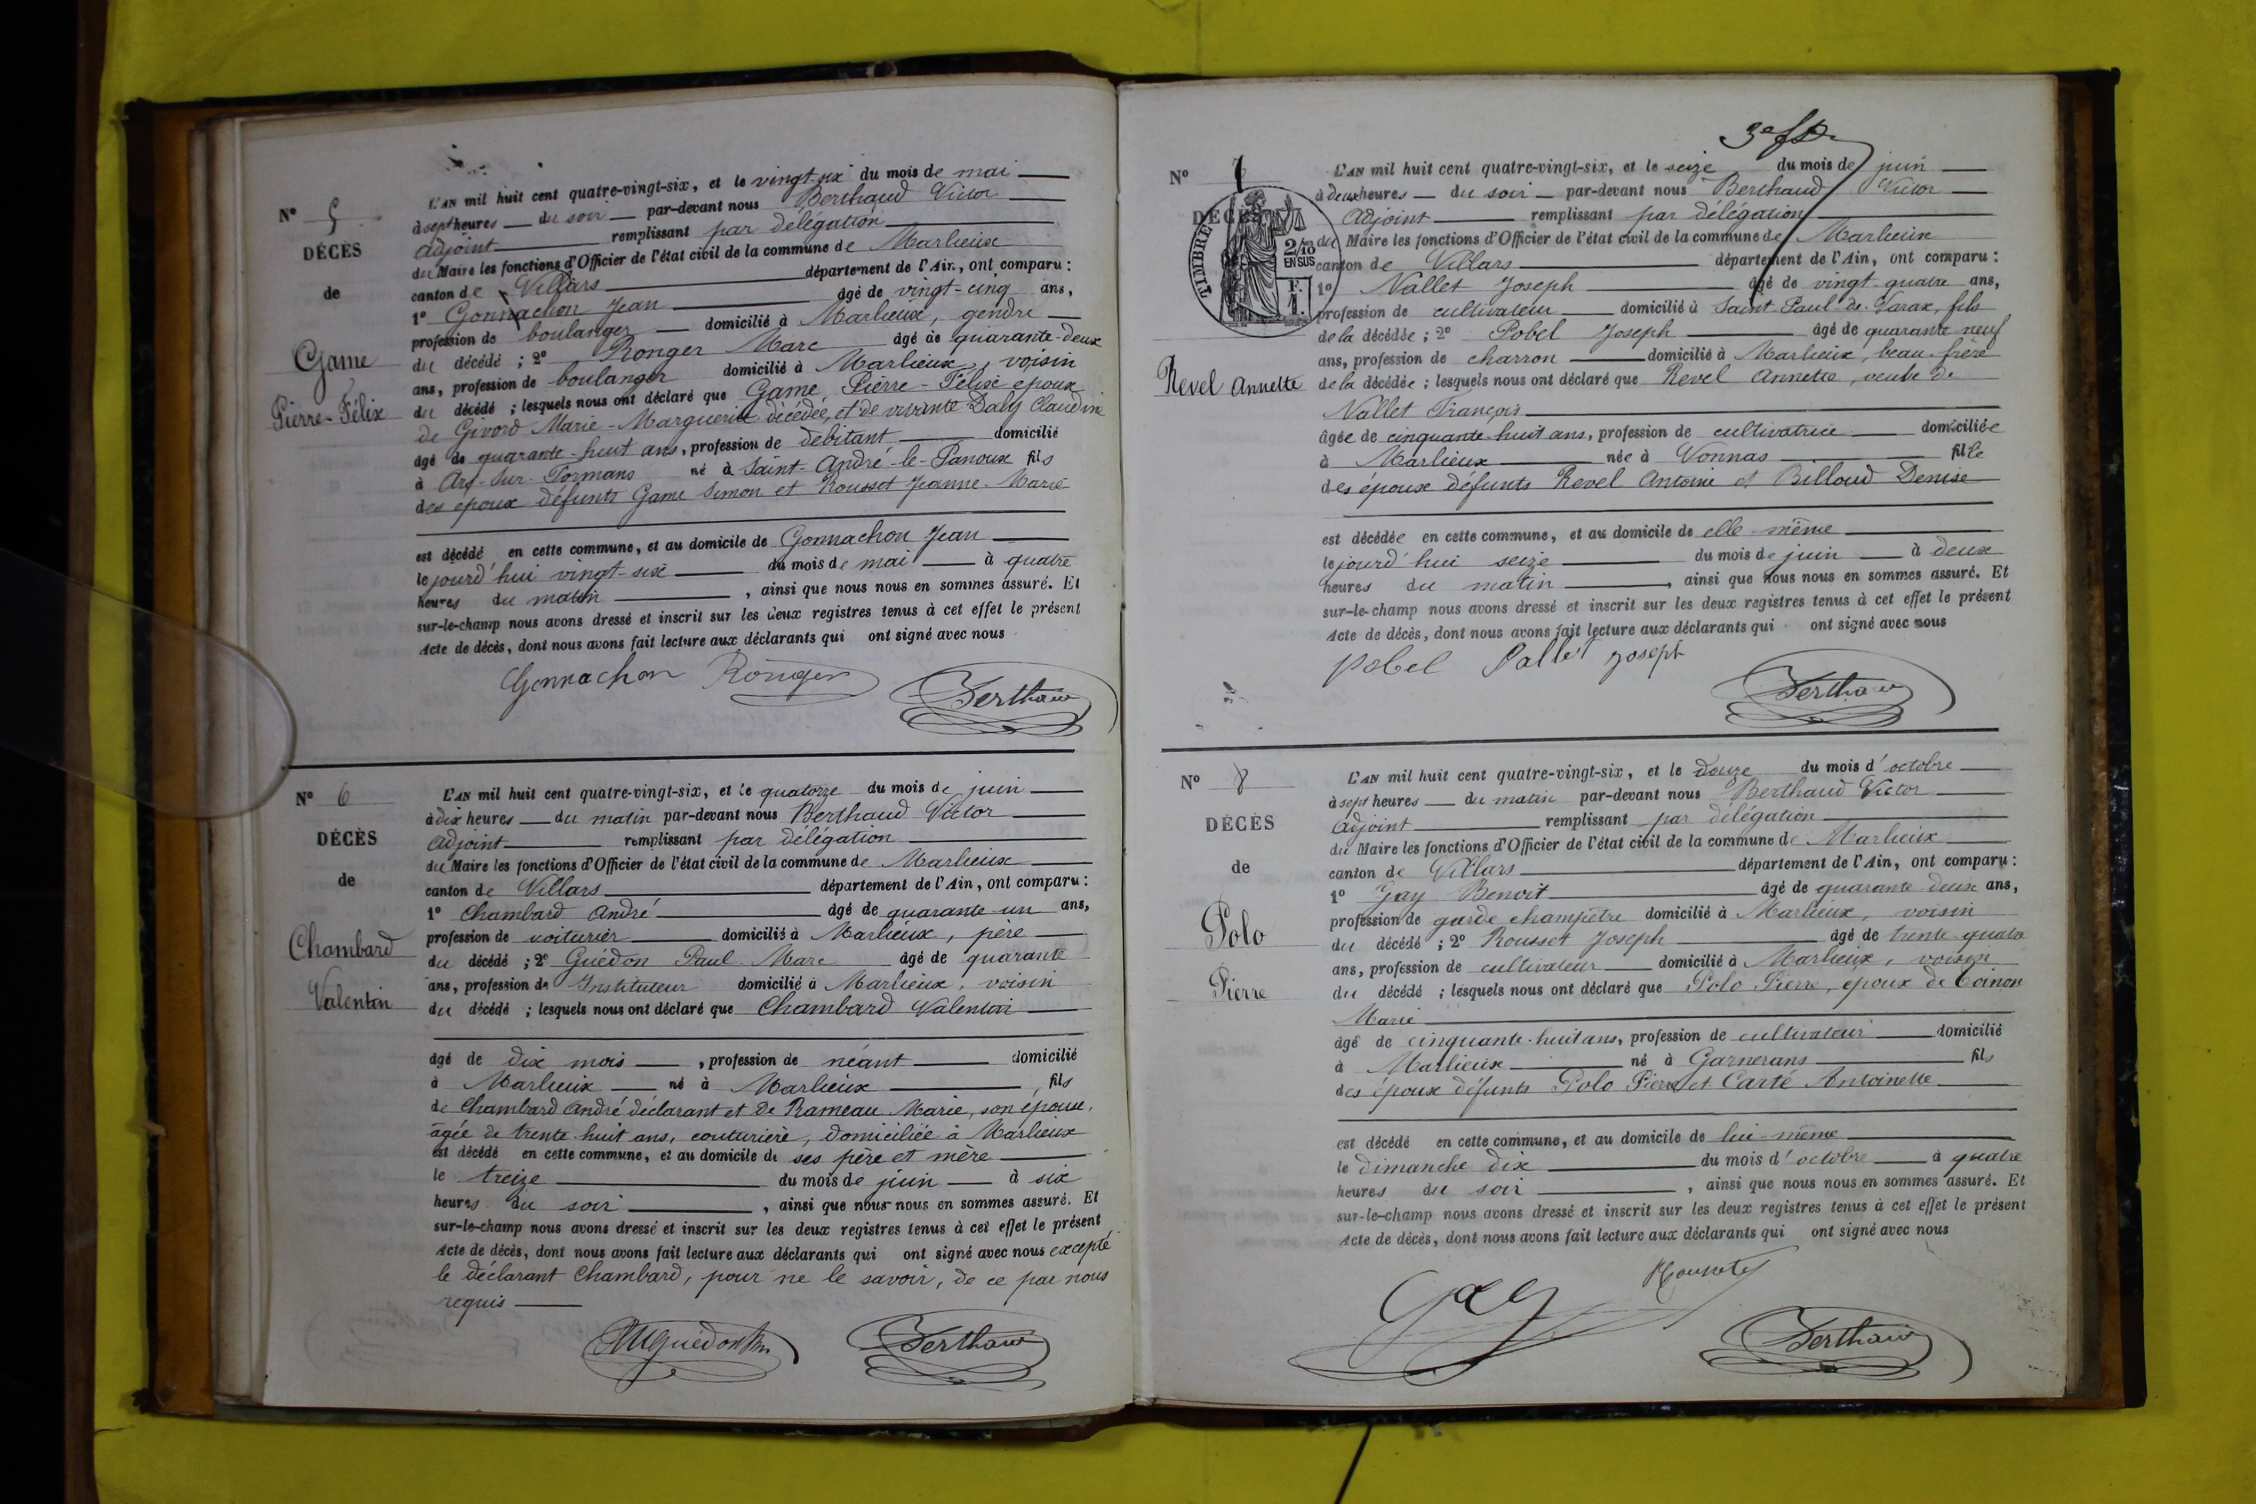 N° 5
DÉCÈS
de
Game
Pierre-Félix
L'AN mil huit cent quatre-vingt-six, et le vingt-six du mois de mai
à sept heures du soir par-devant nous Berthaud Victor
adjoint remplissant par délégation
du Maire les fonctions d'Officier de l'état civil de la commune de Marlieux
canton de Villars département de l'Ain, ont comparu :
1° Gonnachon Jean âgé de vingt-cinq ans,
profession de boulanger domicilié à Marlieux, gendre
du décédé ; 2° Ronger Marc âgé de quarante-deux
ans, profession de boulanger domicilié à Marlieux, voisin
du décédé ; lesquels nous ont déclaré que Game, Pierre-Félix époux
de Givord Marie-Marguerite décédée, et de vivante Daly Claudine
âgé de quarante-huit ans, profession de débitant domicilié
à Ars-sur-Formans né à Saint-André-le-Panoux fils
des époux défunts Game Simon et Rousset Jeanne-Marie
est décédé en cette commune, et au domicile de Gonnachon Jean
le jourd'hui vingt-six du mois de mai à quatre
heures du matin, ainsi que nous nous en sommes assuré. Et
sur-le-champ nous avons dressé et inscrit sur les deux registres tenus à cet effet le présent
Acte de décès, dont nous avons fait lecture aux déclarants qui ont signé avec nous
Gonnachon Ronger Berthaud
N° 6
DÉCÈS
de
Chambard
Valentin
L'AN mil huit cent quatre-vingt-six, et le quatorze du mois de juin
à dix heures du matin par-devant nous Berthaud Victor
adjoint remplissant par délégation
du Maire les fonctions d'Officier de l'état civil de la commune de Marlieux
canton de Villars département de l'Ain, ont comparu :
1° Chambard André âgé de quarante-un ans,
profession de voiturier domicilié à Marlieux, père
du décédé ; 2° Guédon Paul Marc âgé de quarante
ans, profession de Instituteur domicilié à Marlieux, voisin
du décédé ; lesquels nous ont déclaré que Chambard Valentin
âgé de dix mois, profession de néant domicilié
à Marlieux né à Marlieux, fils
de Chambard André déclarant et de Rameau Marie, son épouse,
âgée de trente-huit ans, couturière, domiciliée à Marlieux
est décédé en cette commune, et au domicile de ses père et mère
le treize du mois de juin à six
heures du soir, ainsi que nous nous en sommes assuré. Et
sur-le-champ nous avons dressé et inscrit sur les deux registres tenus à cet effet le présent
Acte de décès, dont nous avons fait lecture aux déclarants qui ont signé avec nous excepté
le déclarant Chambard, pour ne le savoir, de ce par nous
requis
Berthaud
N° 7
DÉCÈS
TIMBRE
2/10
EN SUS
Revel Annette
L'AN mil huit cent quatre-vingt-six, et le seize du mois de juin
à deux heures du soir par-devant nous Berthaud Victor
adjoint remplissant par délégation
du Maire les fonctions d'Officier de l'état civil de la commune de Marlieux
canton de Villars département de l'Ain, ont comparu :
1° Nallet Joseph âgé de vingt-quatre ans,
profession de cultivateur domicilié à Saint Paul de Varax, fils
de la décédée ; 2° Pobel Joseph âgé de quarante neuf
ans, profession de charron domicilié à Marlieux, beau-frère
de la décédée ; lesquels nous ont déclaré que Revel Annette, veuve de
Nallet François
âgée de cinquante-huit ans, profession de cultivatrice domiciliée
à Marlieux née à Vonnas fille
des époux défunts Revel Antoine et Billoud Denise
est décédée en cette commune, et au domicile de elle-même
le jourd'hui seize du mois de juin à deux
heures du matin, ainsi que nous nous en sommes assuré. Et
sur-le-champ nous avons dressé et inscrit sur les deux registres tenus à cet effet le présent
Acte de décès, dont nous avons fait lecture aux déclarants qui ont signé avec nous
Pobel Nallet Joseph
Berthaud
N° 8
DÉCÈS
de
Polo
Pierre
L'AN mil huit cent quatre-vingt-six, et le douze du mois d'octobre
à sept heures du matin par-devant nous Berthaud Victor
adjoint remplissant par délégation
du Maire les fonctions d'Officier de l'état civil de la commune de Marlieux
canton de Villars département de l'Ain, ont comparu :
1° Gay Benoit âgé de quarante deux ans,
profession de garde champêtre domicilié à Marlieux, voisin
du décédé ; 2° Rousset Joseph âgé de trente-quatre
ans, profession de cultivateur domicilié à Marlieux, voisin
du décédé ; lesquels nous ont déclaré que Polo Pierre, époux de Coinon
Marie
âgé de cinquante-huit ans, profession de cultivateur domicilié
à Marlieux né à Garnerans fils
des époux défunts Polo Pierre et Carté Antoinette
est décédé en cette commune, et au domicile de lui-même
le dimanche dix du mois d'octobre à quatre
heures du soir, ainsi que nous nous en sommes assuré. Et
sur-le-champ nous avons dressé et inscrit sur les deux registres tenus à cet effet le présent
Acte de décès, dont nous avons fait lecture aux déclarants qui ont signé avec nous
Gay Rousset
Berthaud